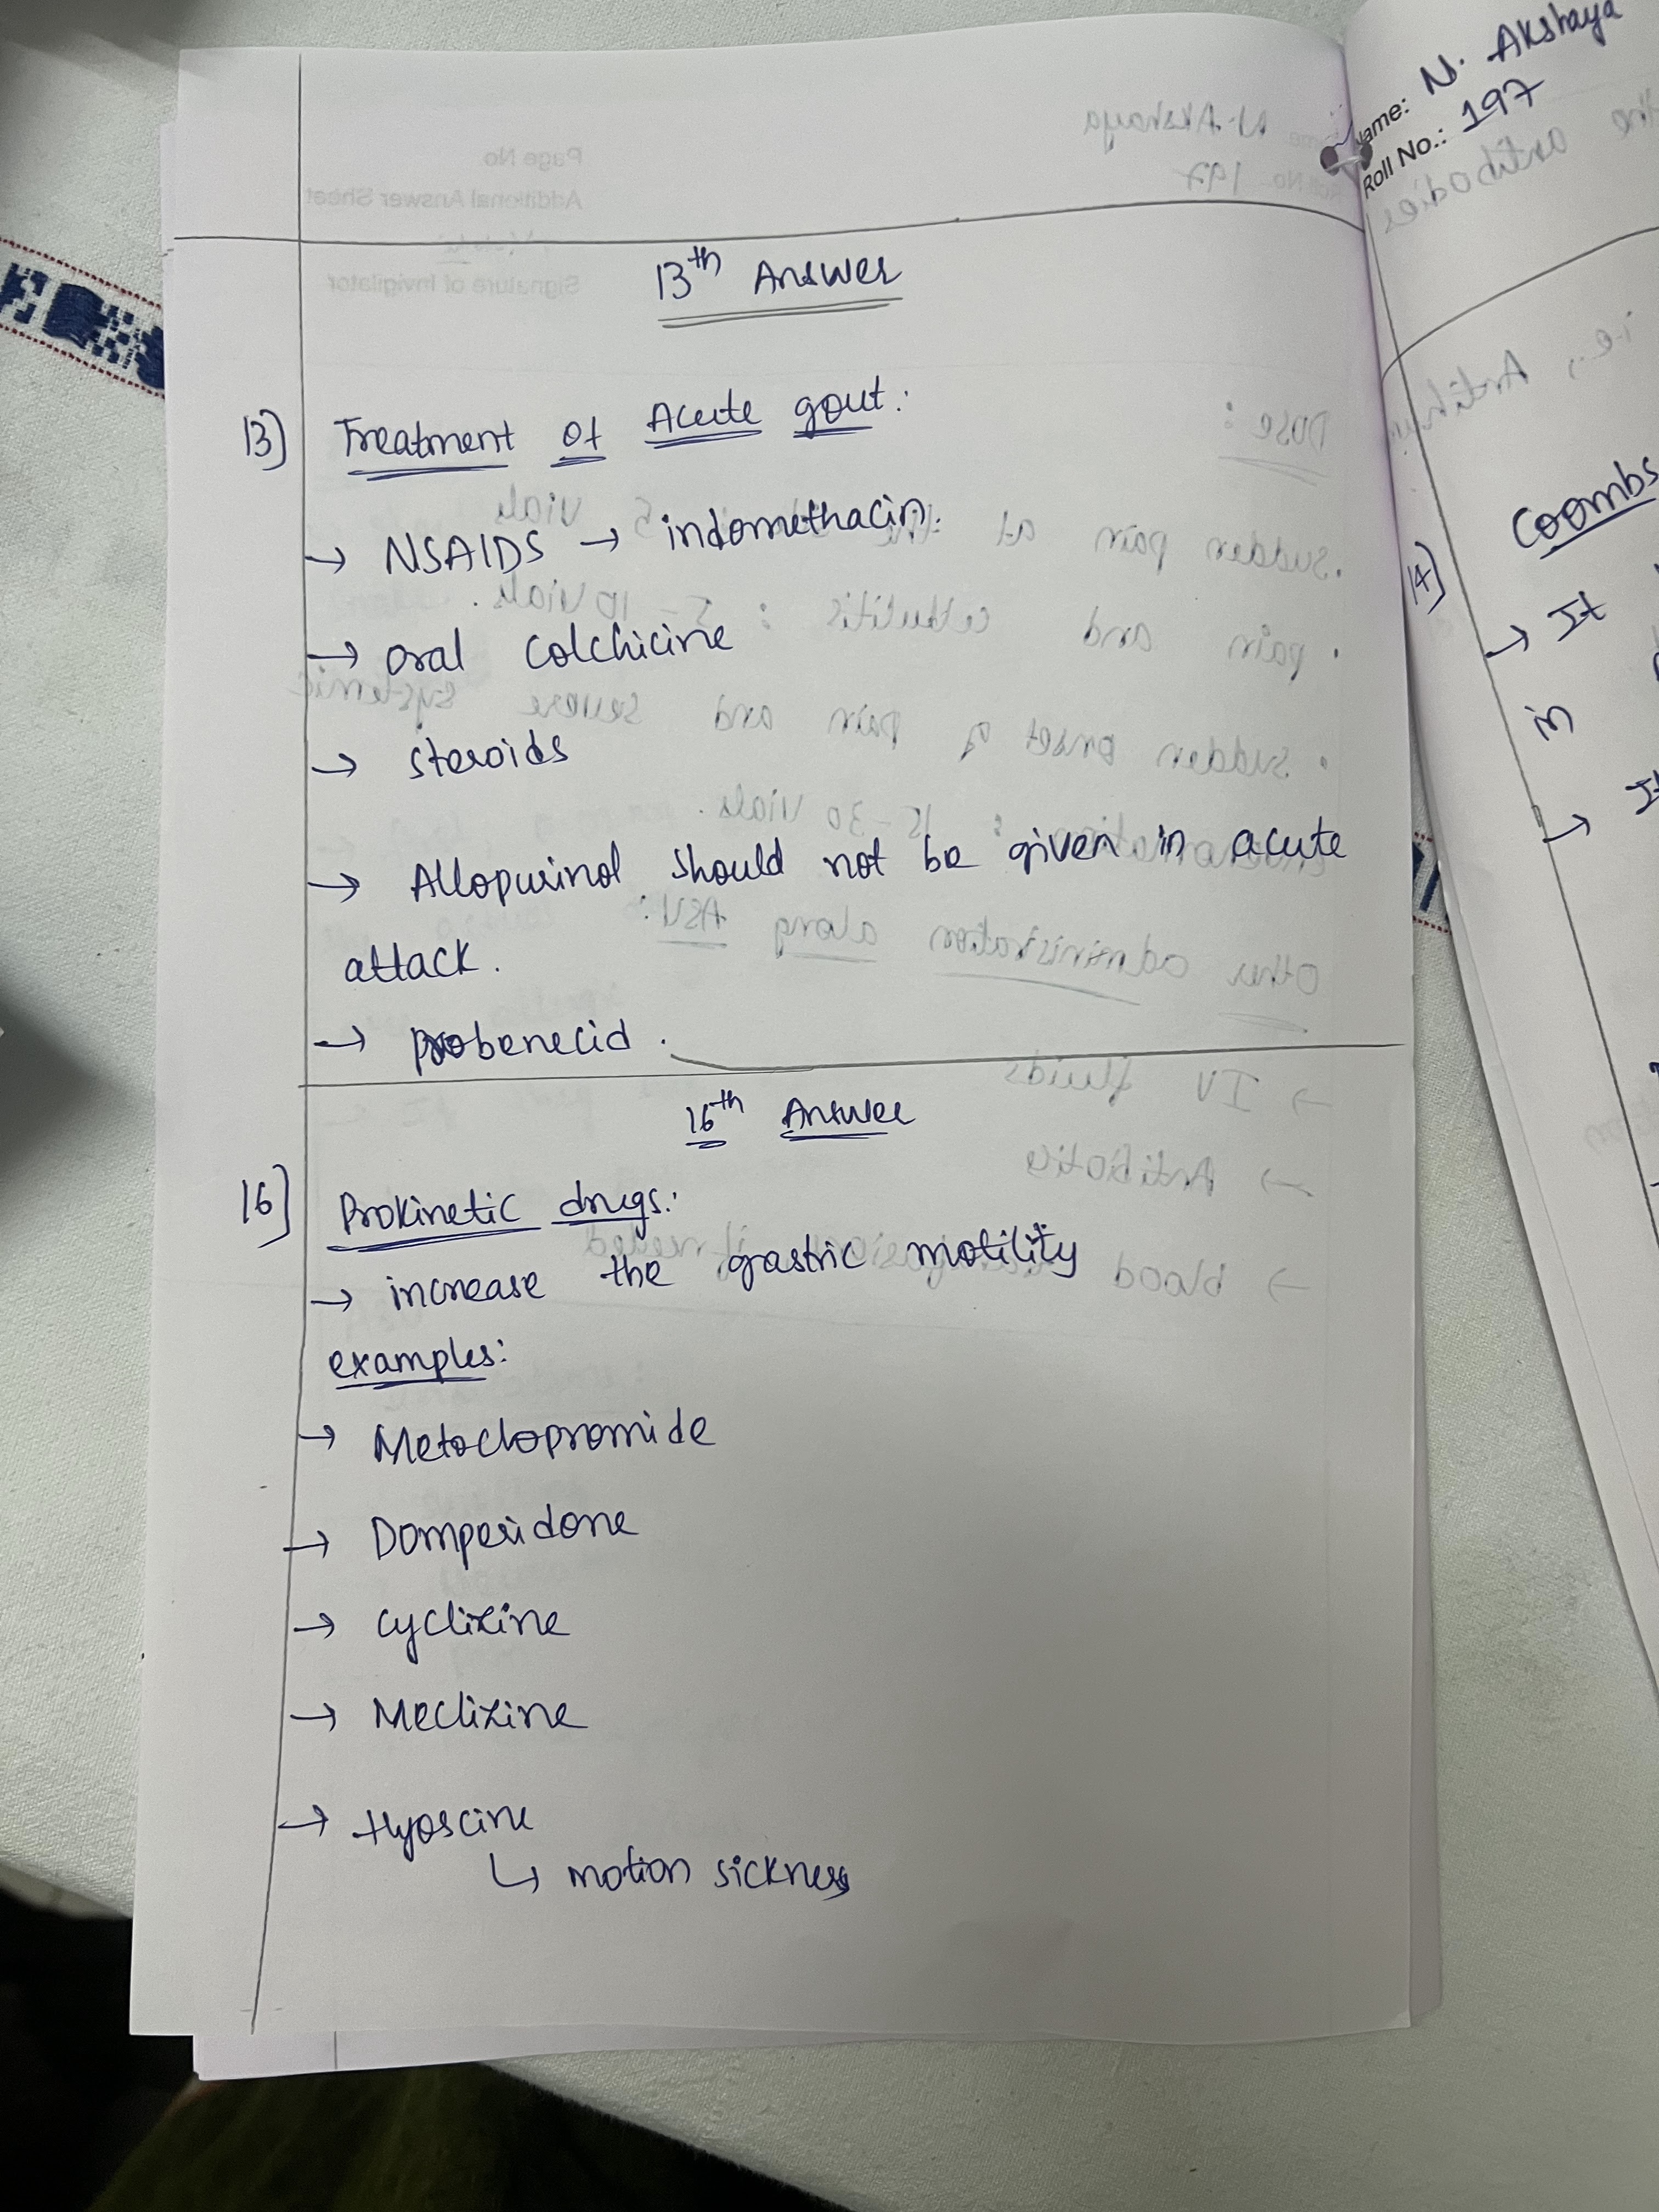 13th Answer
13) Treatment of Acute gout:
→ NSAIDS → indomethacin.
→ oral colchicine
→ steroids
→ Allopurinol should not be given in acute
attack.
→ probenecid.
16th Answer
16] Prokinetic drugs:
→ increase the gastric motility
examples:
→ Metoclopromide
→ Domperidone
→ cyclizine
→ Meclizine
→ Hyoscine
↳ motion sickness
Name: N. Akshaya
Roll No.: 197
Coombs
14)
→ It
in
→ It